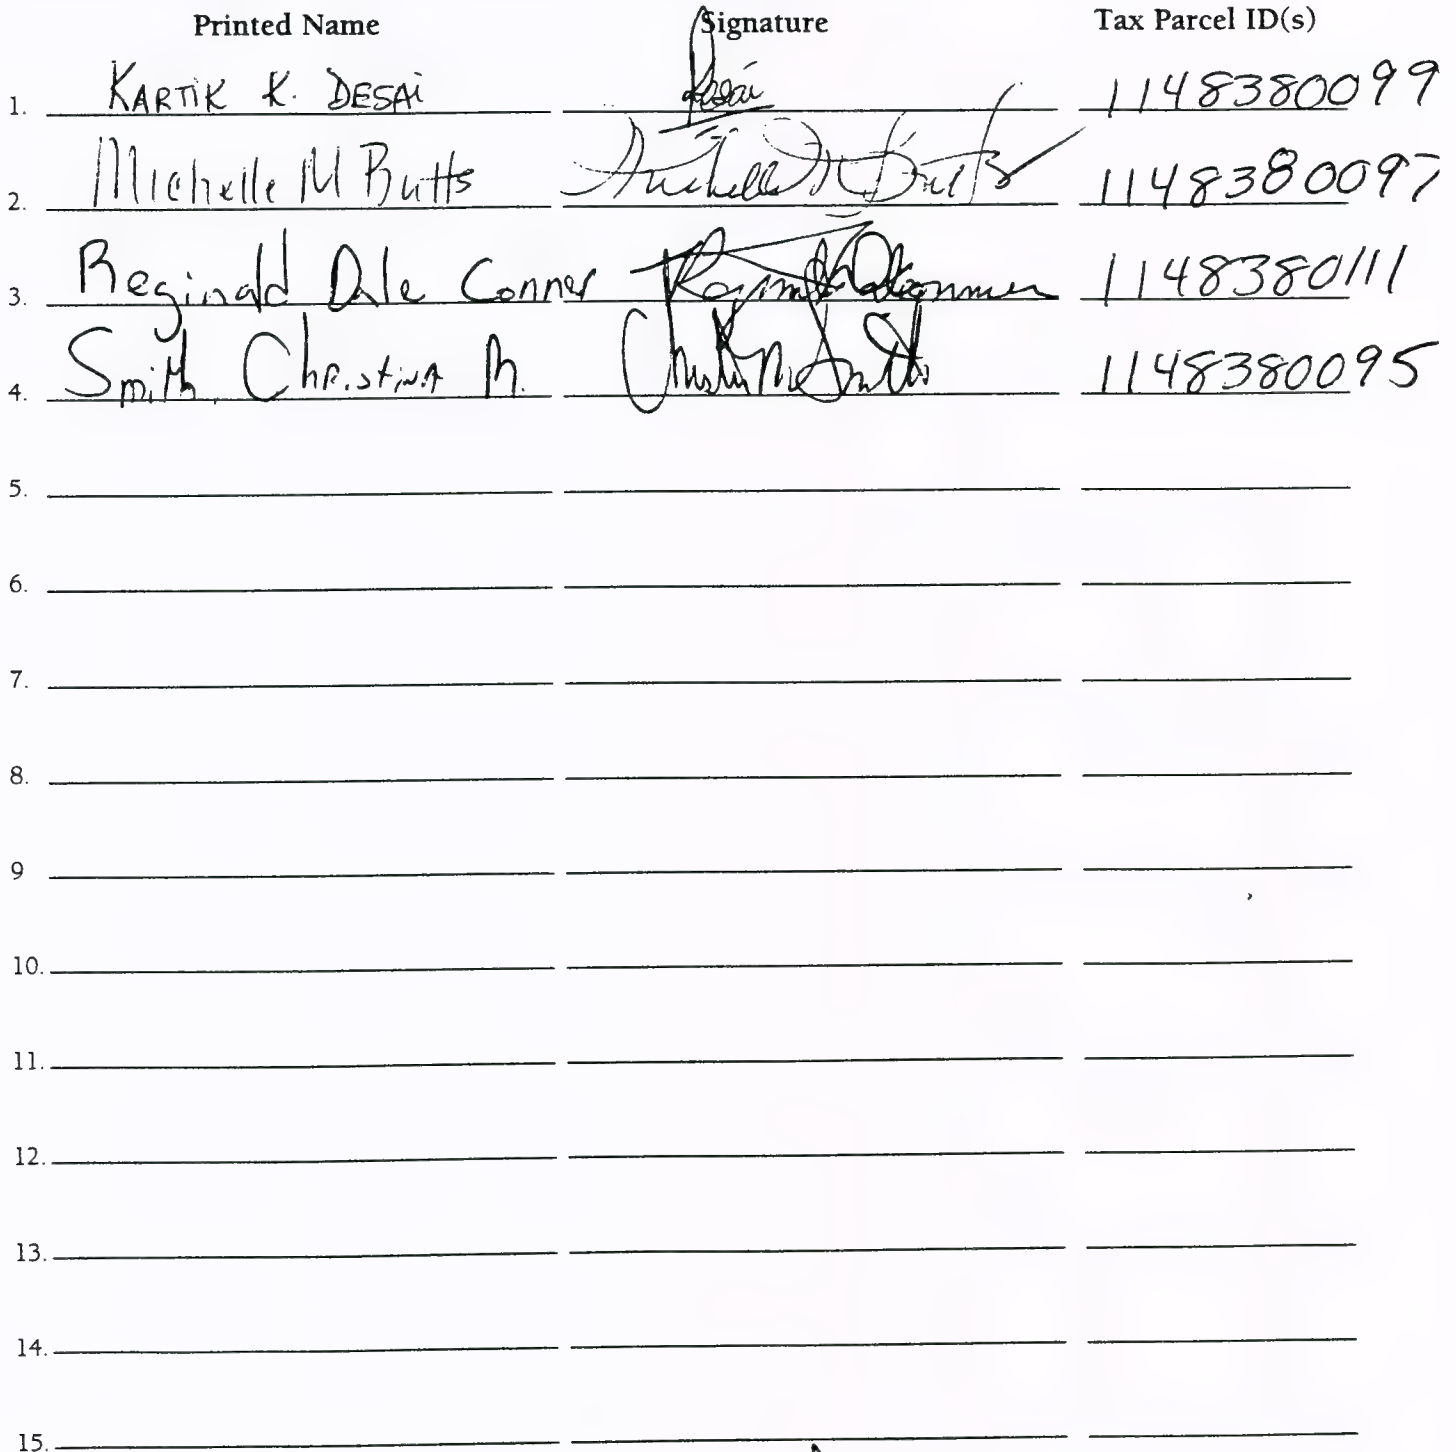 Printed Name Signature Tax Parcel ID(s)
1. KARTIK K. DESAI Desai 1148380099
2. Michelle M Butts Michelle M Butts 1148380097
3. Reginald Dale Conner 1148380111
4. Smith, Christina M. 1148380095
5.
6.
7.
8.
9
10.
11.
12.
13.
14.
15.